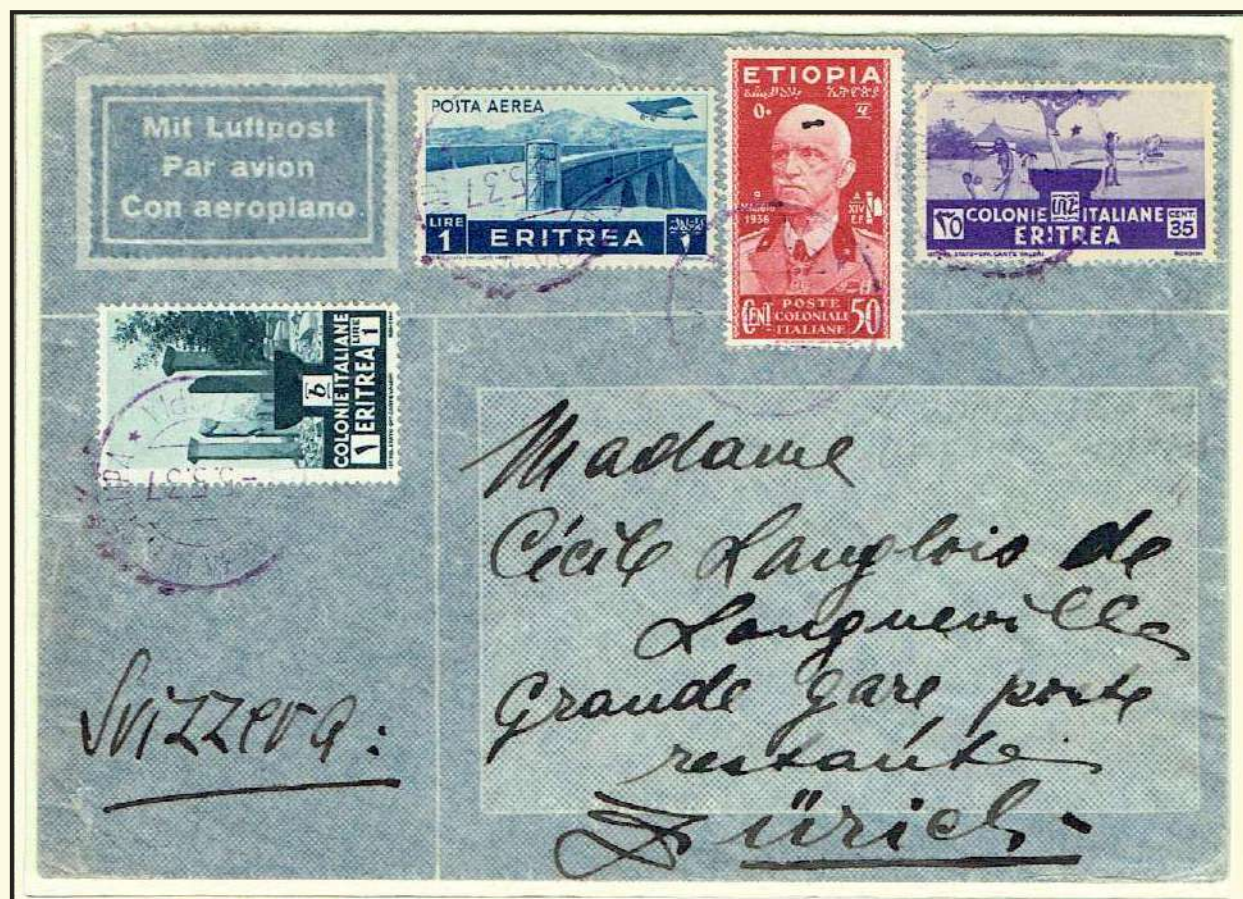 Mit Luftpost
Par avion
Con aeroplano
POSTA AEREA
LIRE
1 ERITREA
ETIOPIA
9
MAGGIO
1936
A
XIV
E.F.
POSTE
COLONIALI
ITALIANE
CENT 50
٣٥ COLONIE ITALIANE CENT. 35
ERITREA
COLONIE ITALIANE
١ ERITREA LIRE 1
-5.5.37
5.37
Madame
Cécile Langlois de
Longueville
Grande gare poste
restante
Zürich-
Svizzera: